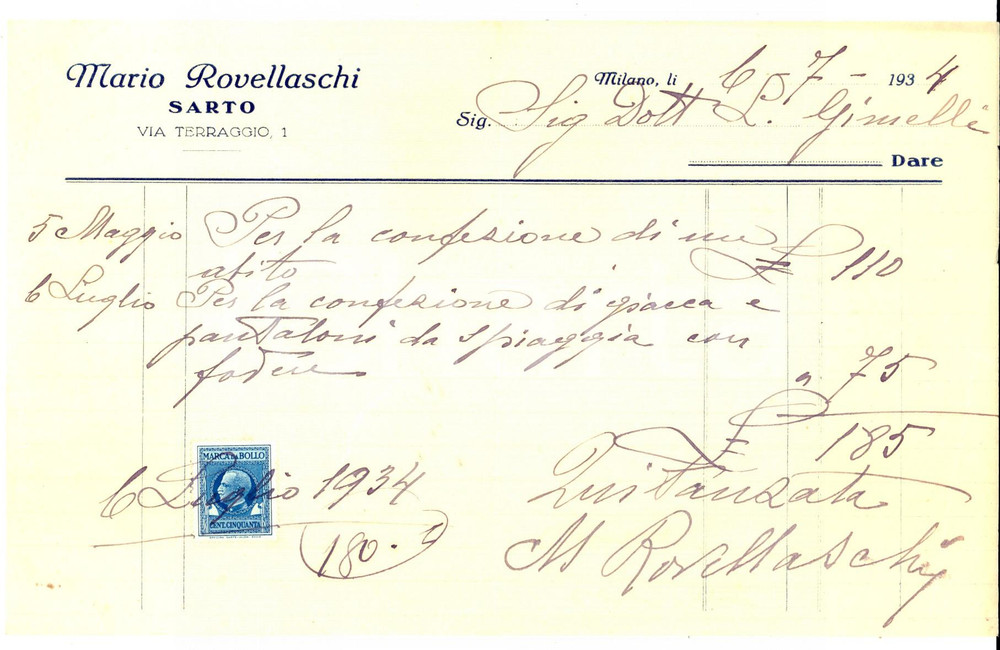 Mario Rovellaschi
SARTO
VIA TERRAGGIO, 1
Milano, li 6 - 7 - 1934
Sig. Sig Dott L. Gimelli
Dare
5 Maggio Per la confezione di un
abito £ 110
6 Luglio Per la confezione di giacca e
pantaloni da spiaggia con
fodere " 75
£ 185
MARCA DA BOLLO
CENT. CINQUANTA
6 Luglio 1934 Quitanzata
180.-
M Rovellaschi